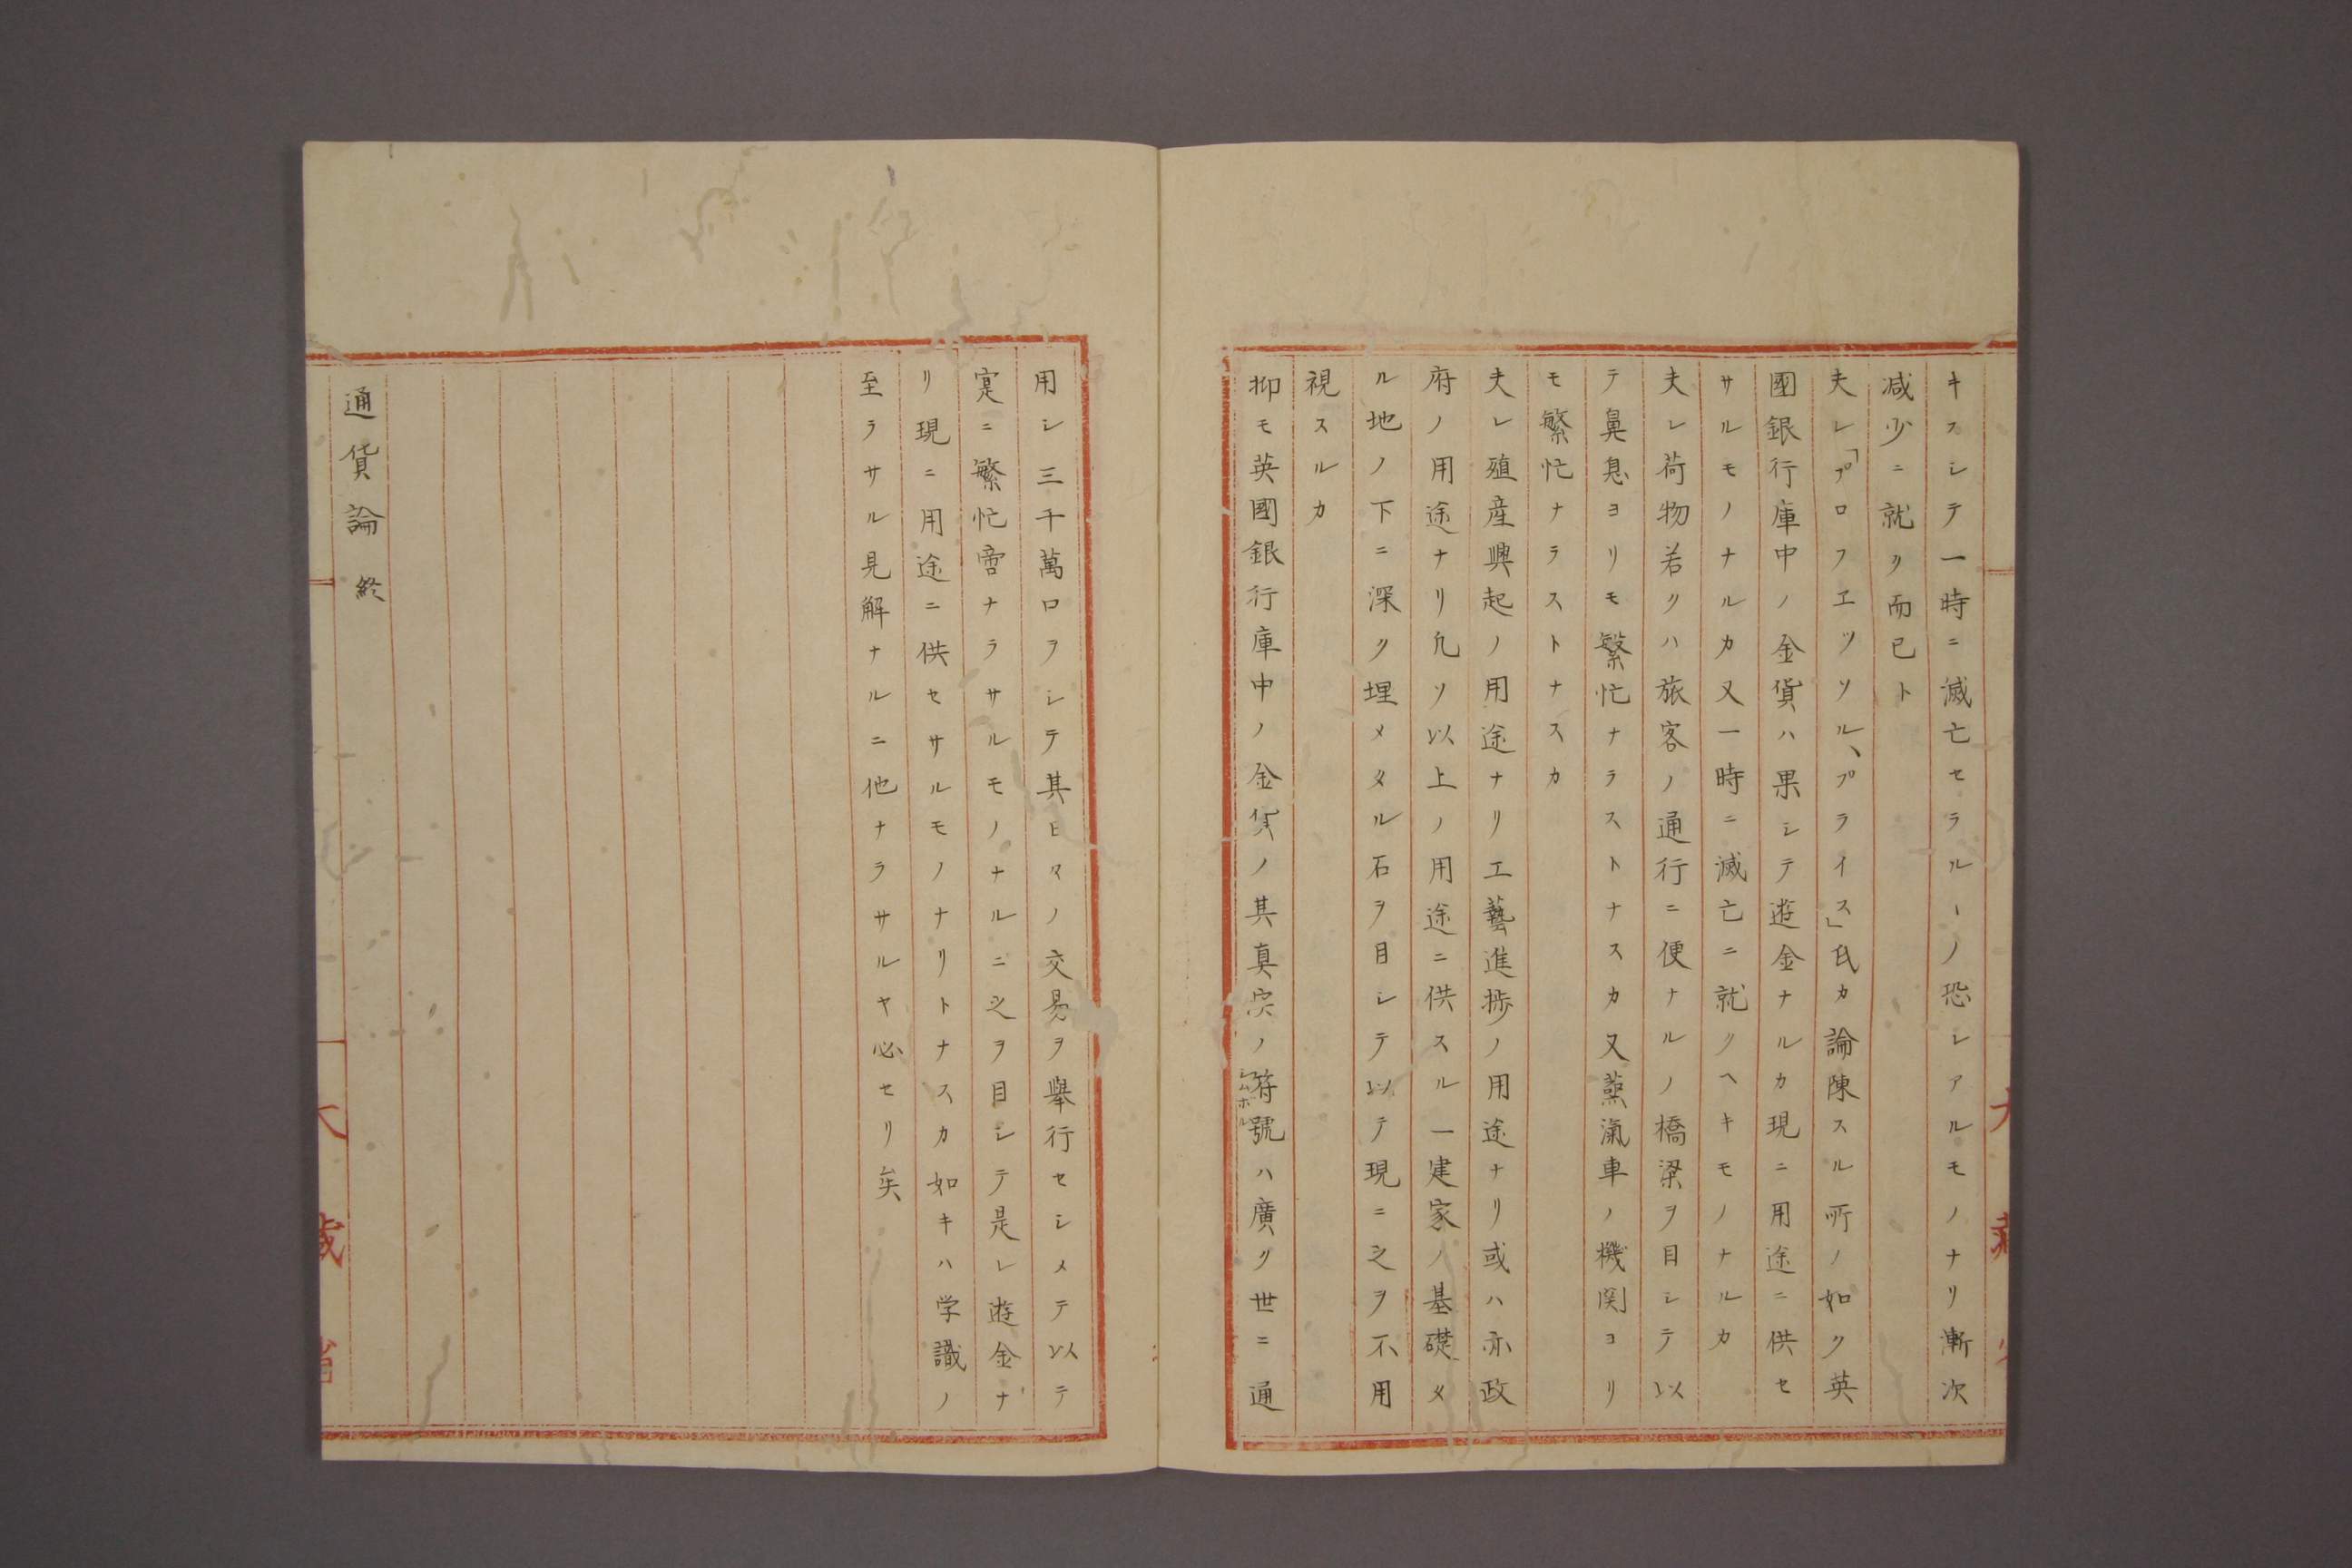 キスシテ一時ニ滅亡セラルヽノ恐レアルモノナリ漸次
減少ニ就ク而已ト
夫レ「プロフエツソル、プライス」氏カ論陳スル所ノ如ク英
國銀行庫中ノ金貨ハ果シテ遊金ナルカ現ニ用途ニ供セ
サルモノナルカ又一時ニ滅亡ニ就クヘキモノナルカ
夫レ荷物若クハ旅客ノ通行ニ便ナルノ橋梁ヲ目シテ以
テ鼻息ヨリモ繁忙ナラストナスカ又蒸滊車ノ機関ヨリ
モ繁忙ナラストナスカ
夫レ殖産興起ノ用途ナリ工藝進捗ノ用途ナリ或ハ亦政
府ノ用途ナリ凡ソ以上ノ用途ニ供スル一建家ノ基礎メ
ル地ノ下ニ深ク埋メタル石ヲ目シテ以テ現ニ之ヲ不用
視スルカ
抑モ英國銀行庫中ノ金貨ノ其真実ノ符號ハ廣ク世ニ通
シムホル
用シ三千萬口ヲシテ其ヒマノ交易ヲ擧行セシメテ以テ
寔ニ繁忙啻ナラサルモノナルニ之ヲ目シテ是レ遊金ナ
リ現ニ用途ニ供セサルモノナリトナスカ如キハ学識ノ
至ラサル見解ナルニ他ナラサルヤ必セリ矣
通貨論 終
大蔵省